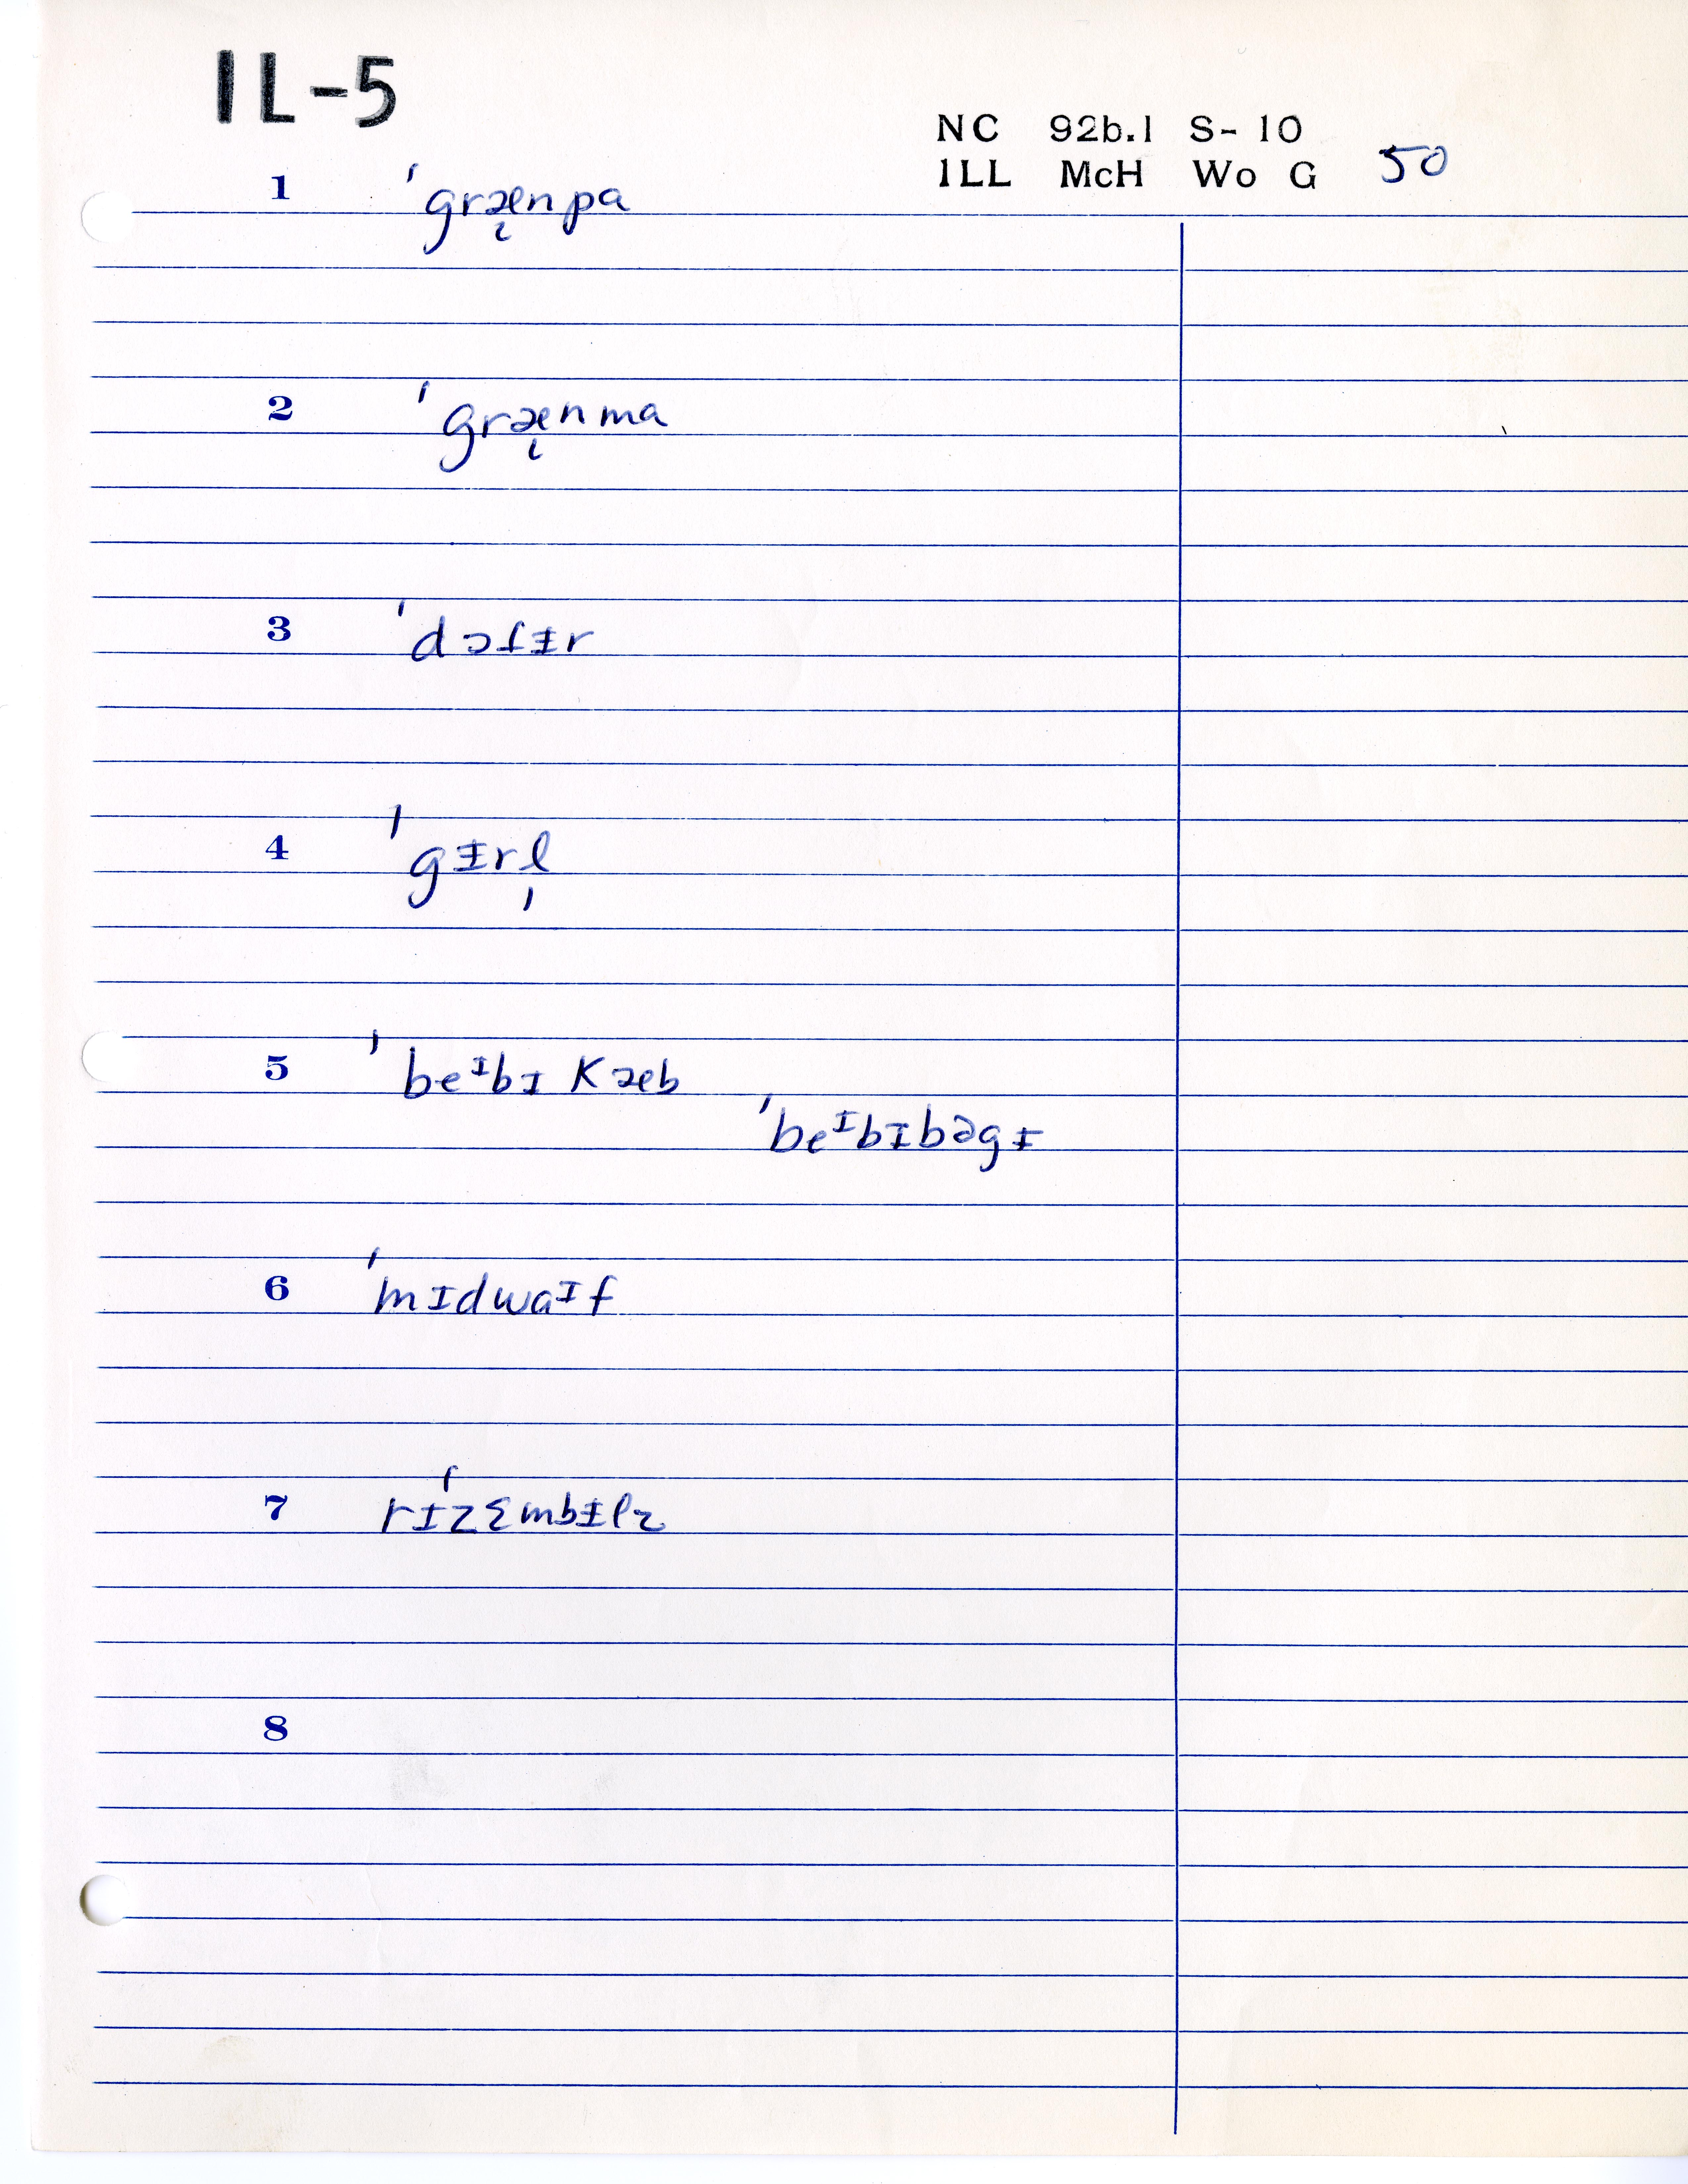 IL-5
NC 92b.1 S- 10
ILL McH Wo G 50
1 ˈgræ̨npa
2 ˈgræ̨nma
3 ˈdɔfᵻr
4 ˈgᵻrl̩
5 ˈbeᶦbɪ Kæb
ˈbeᶦbɪbəgᵻ
6 ˈmɪdwaᶦf
7 rɪˈzɛmbᵻlz
8